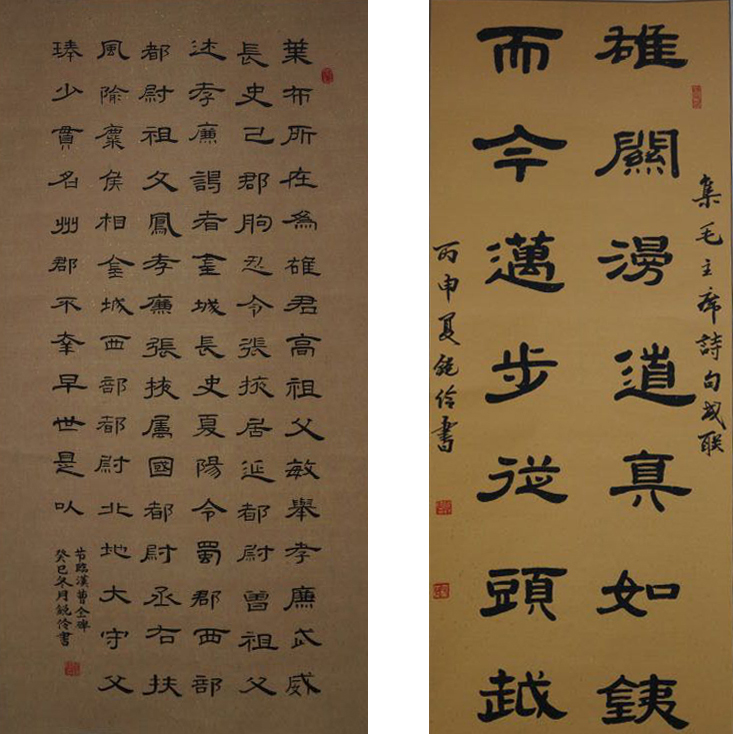 葉布所在為雄君高祖父敏舉孝廉武威
長史巴郡朐忍令張掖居延都尉曾祖父
述孝廉謁者金城長史夏陽令蜀郡西部
都尉祖父鳳孝廉張掖属國都尉丞右扶
風隃麋侯相金城西部都尉北地大守父
琫少貫名州郡不幸早世是以
节臨漢曹全碑
癸巳冬月銳伶書
集毛主席詩句成联
雄關漫道真如銕
而今邁步從頭越
丙申夏銳伶書